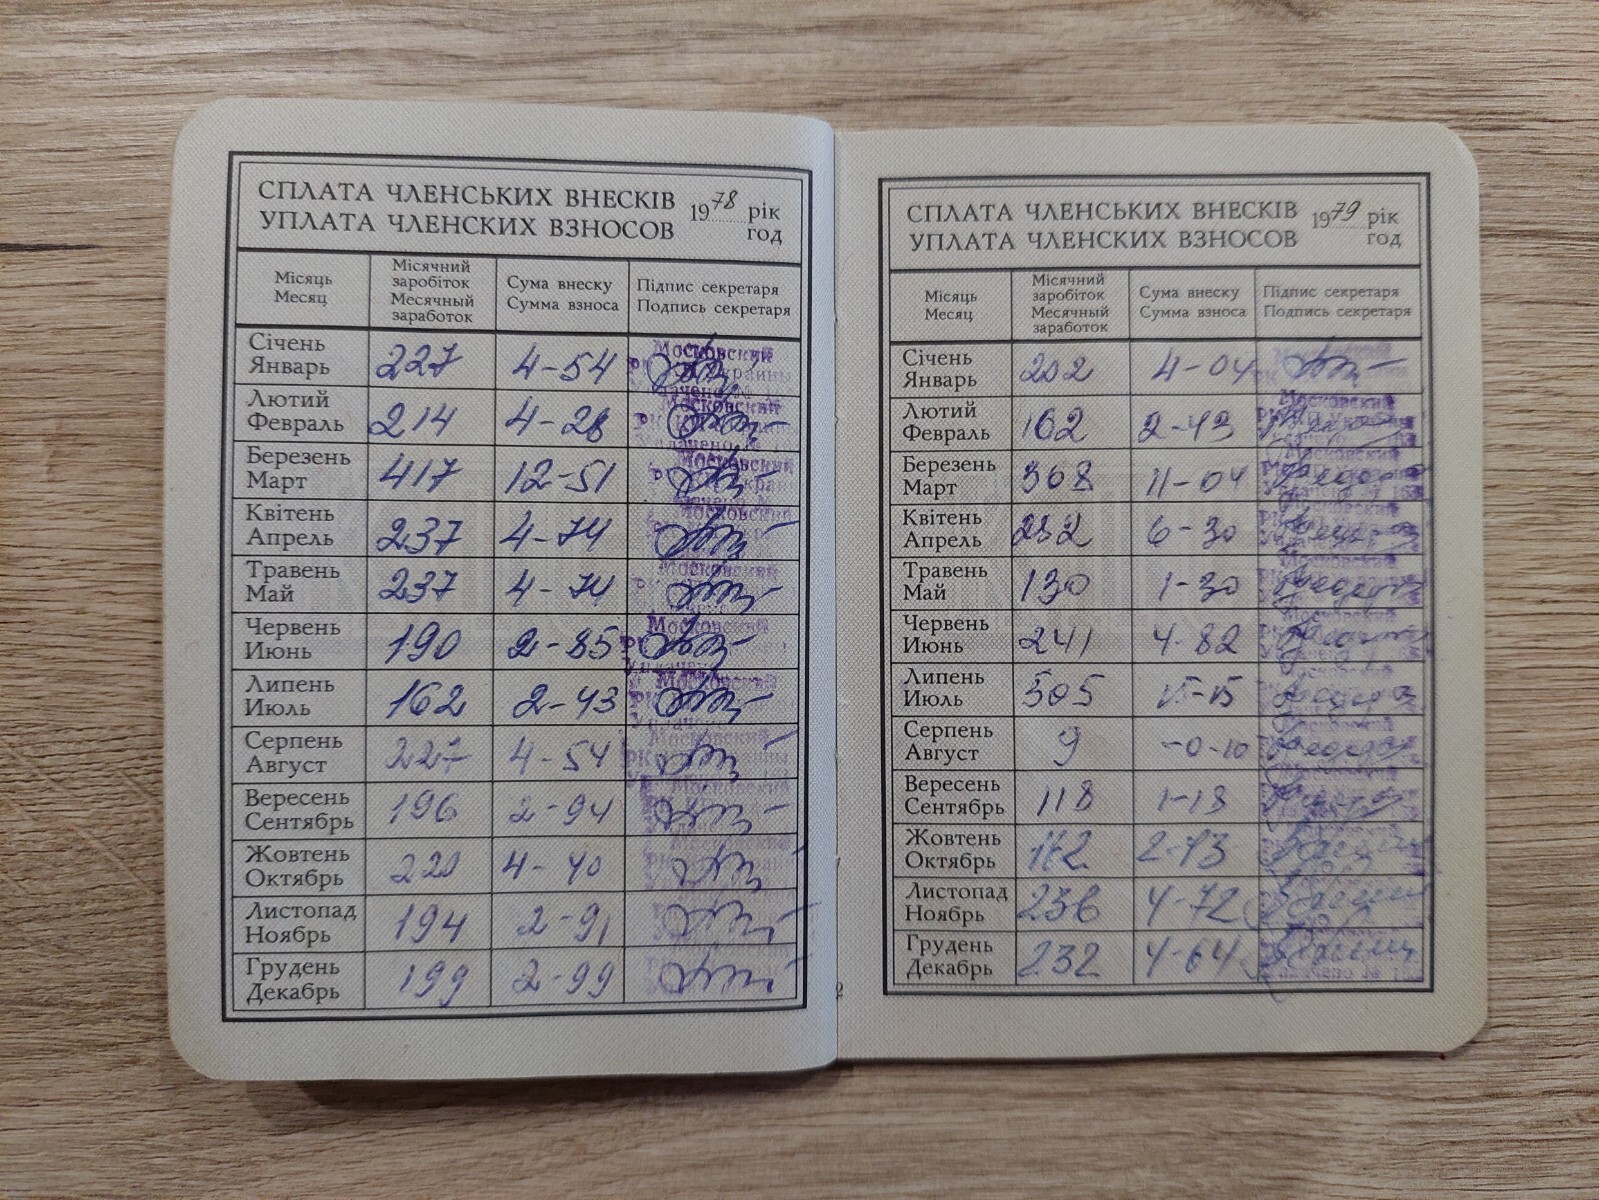 СПЛАТА ЧЛЕНСЬКИХ ВНЕСКІВ 1978 рік
УПЛАТА ЧЛЕНСКИХ ВЗНОСОВ год
Місяць Місячний заробіток Сума внеску Підпис секретаря
Месяц Месячный заработок Сумма взноса Подпись секретаря
Січень
Январь 227 4-54 Московский
Лютий
Февраль 214 4-28 Московский
Березень
Март 417 12-51 Московский
Квітень
Апрель 237 4-74 Московский
Травень
Май 237 4-74 Московский
Червень
Июнь 190 2-85 Московский
Липень
Июль 162 2-43 Московский
Серпень
Август 227 4-54 Московский
Вересень
Сентябрь 196 2-94 Московский
Жовтень
Октябрь 220 4-40
Листопад
Ноябрь 194 2-91
Грудень
Декабрь 199 2-99
СПЛАТА ЧЛЕНСЬКИХ ВНЕСКІВ 1979 рік
УПЛАТА ЧЛЕНСКИХ ВЗНОСОВ год
Місяць Місячний заробіток Сума внеску Підпис секретаря
Месяц Месячный заработок Сумма взноса Подпись секретаря
Січень
Январь 202 4-04
Лютий
Февраль 162 2-43 Московский
Березень
Март 368 11-04 Московский
Квітень
Апрель 6-30
Травень
Май 130 1-30 Московский
Червень
Июнь 241 4-82
Липень
Июль 505 15-15
Серпень
Август 9 -0-10
Вересень
Сентябрь 118 1-18
Жовтень
Октябрь 2-73
Листопад
Ноябрь 236 4-72
Грудень
Декабрь 232 4-64